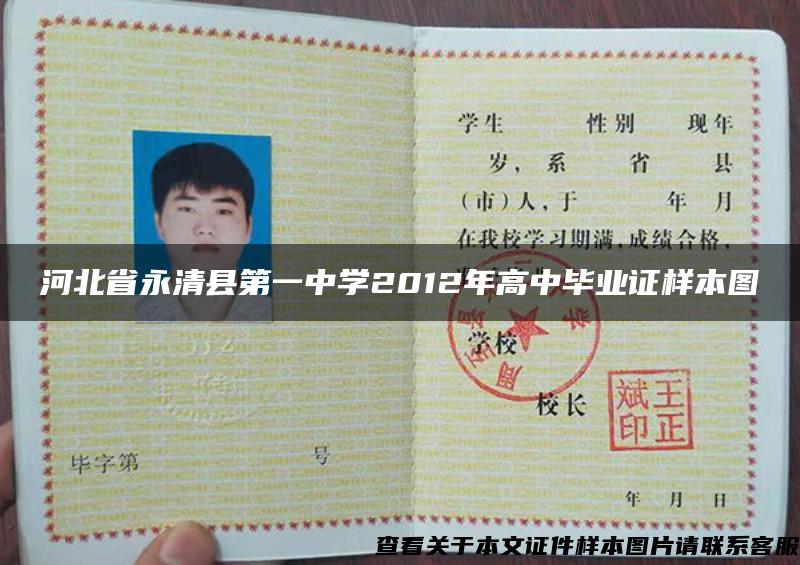 学生 性别 现年
岁，系 省 县
（市）人，于 年 月
在我校学习期满，成绩合格，
河北省永清县第一中学2012年高中毕业证样本图
学校
校长
王正
斌印
毕字第 号
年 月 日
查看关于本文证件样本图片请联系客服